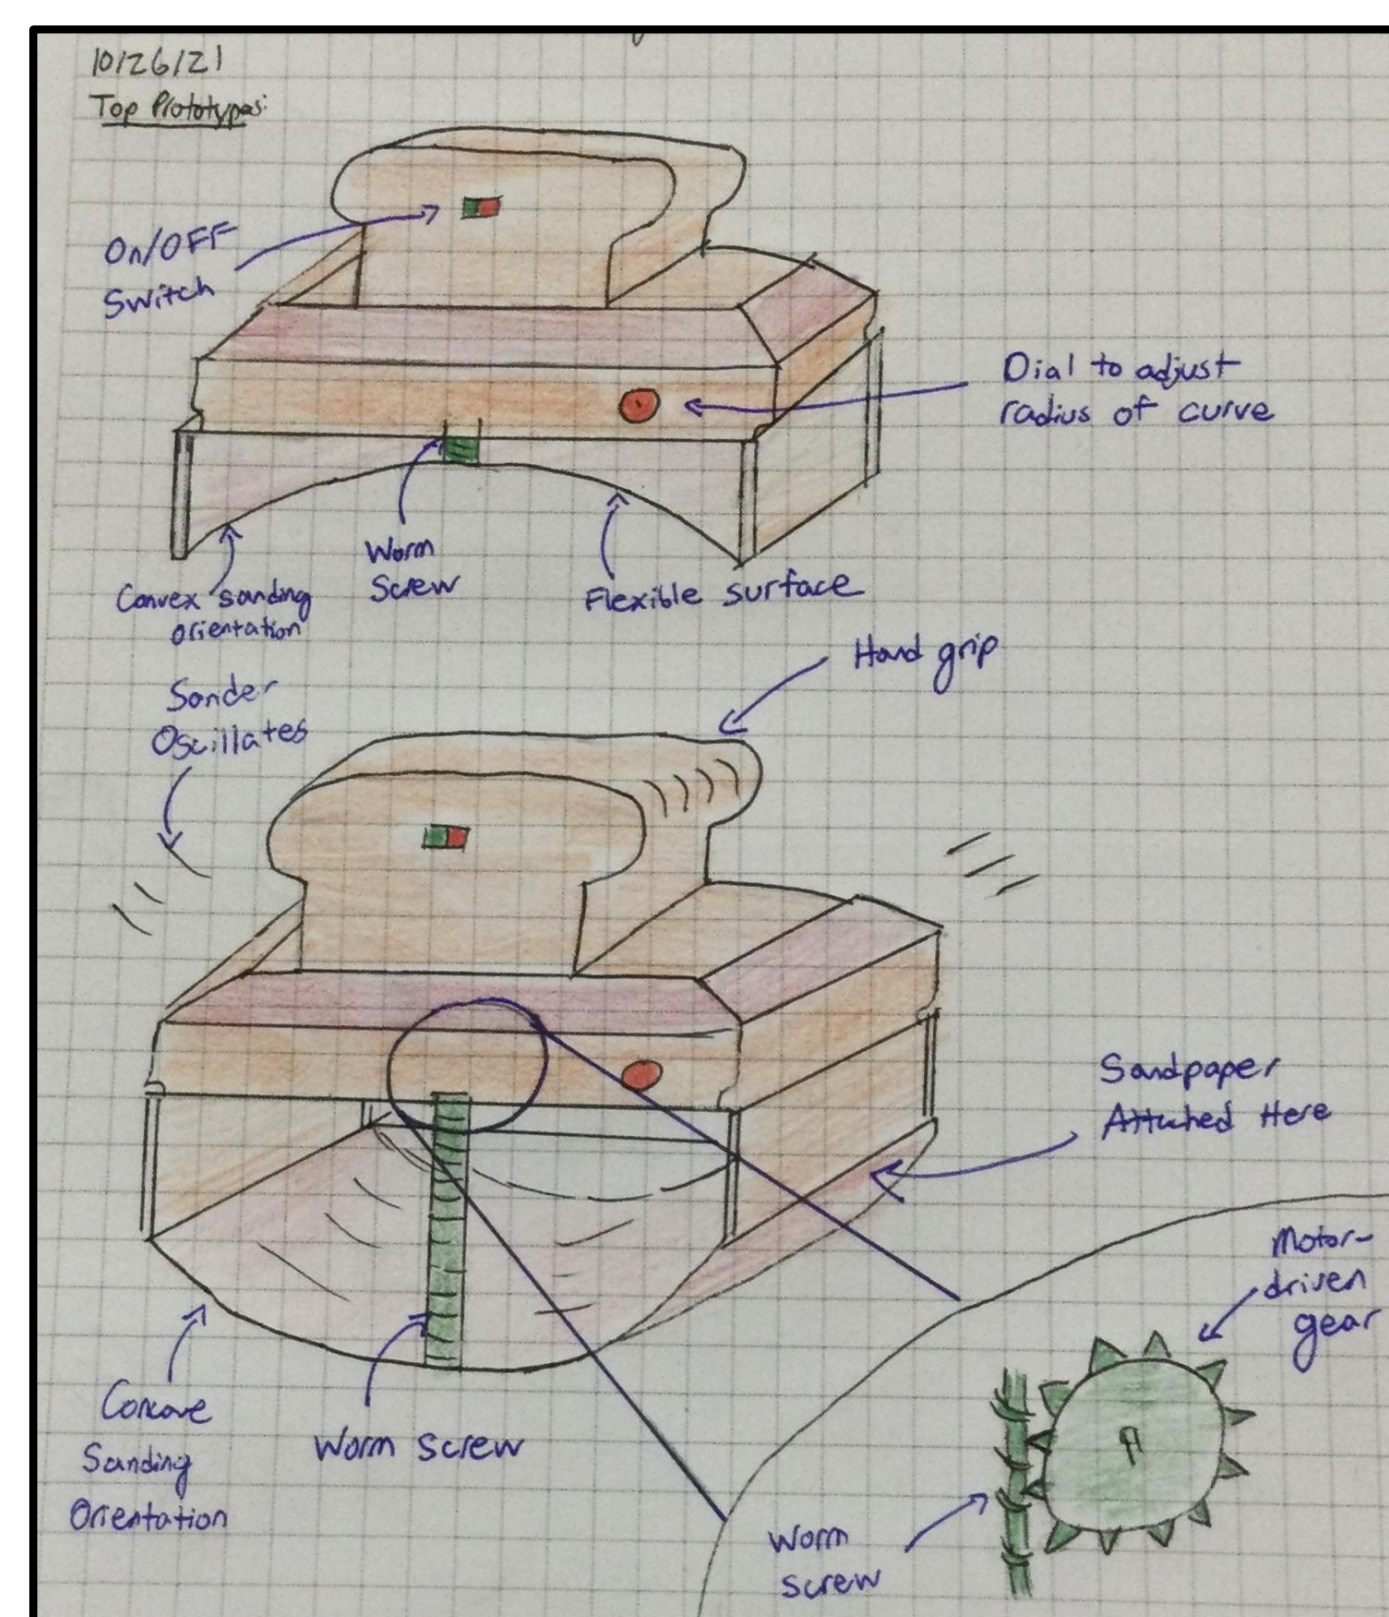 10/26/21
Top Prototypes:
On/OFF
Switch
Dial to adjust
radius of curve
Worm
Screw
Convex sanding
orientation
Flexible surface
Hand grip
Sander
Oscillates
Sandpaper
Attached Here
Motor-
driven
gear
Concave
Sanding
Orientation
Worm screw
Worm
screw